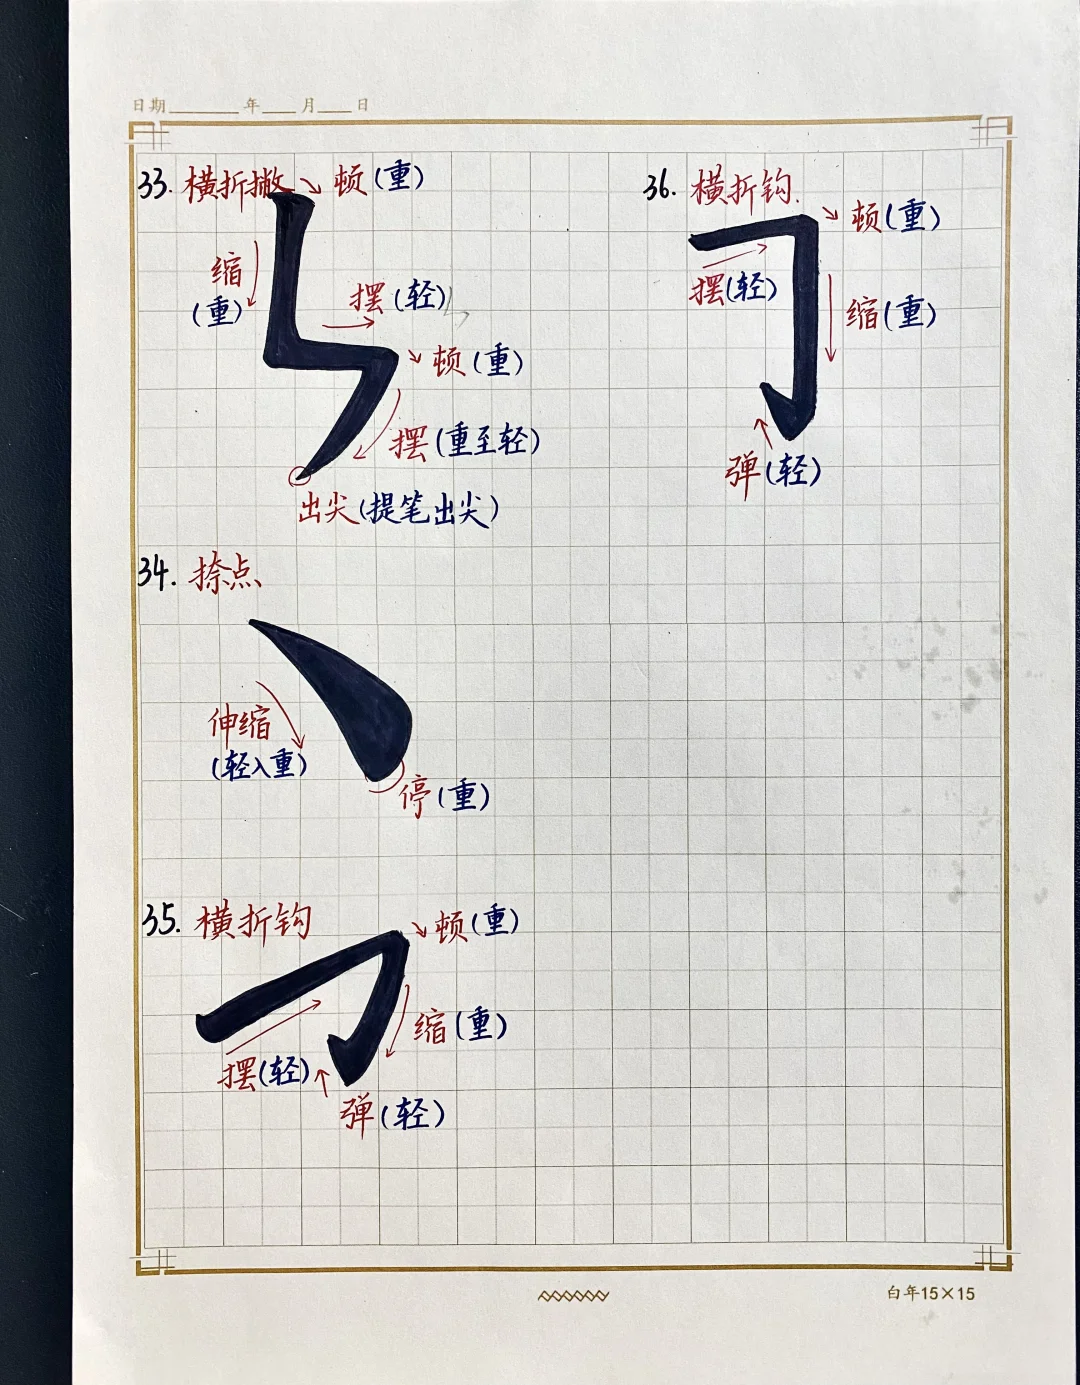 日期 年 月 日
33. 横折撇 顿(重)
缩
(重)
摆(轻)
顿(重)
摆(重至轻)
出尖(提笔出尖)
34. 捺点
伸缩
(轻入重)
停(重)
35. 横折钩
顿(重)
缩(重)
摆(轻)
弹(轻)
36. 横折钩.
顿(重)
摆(轻)
缩(重)
弹(轻)
白年15×15